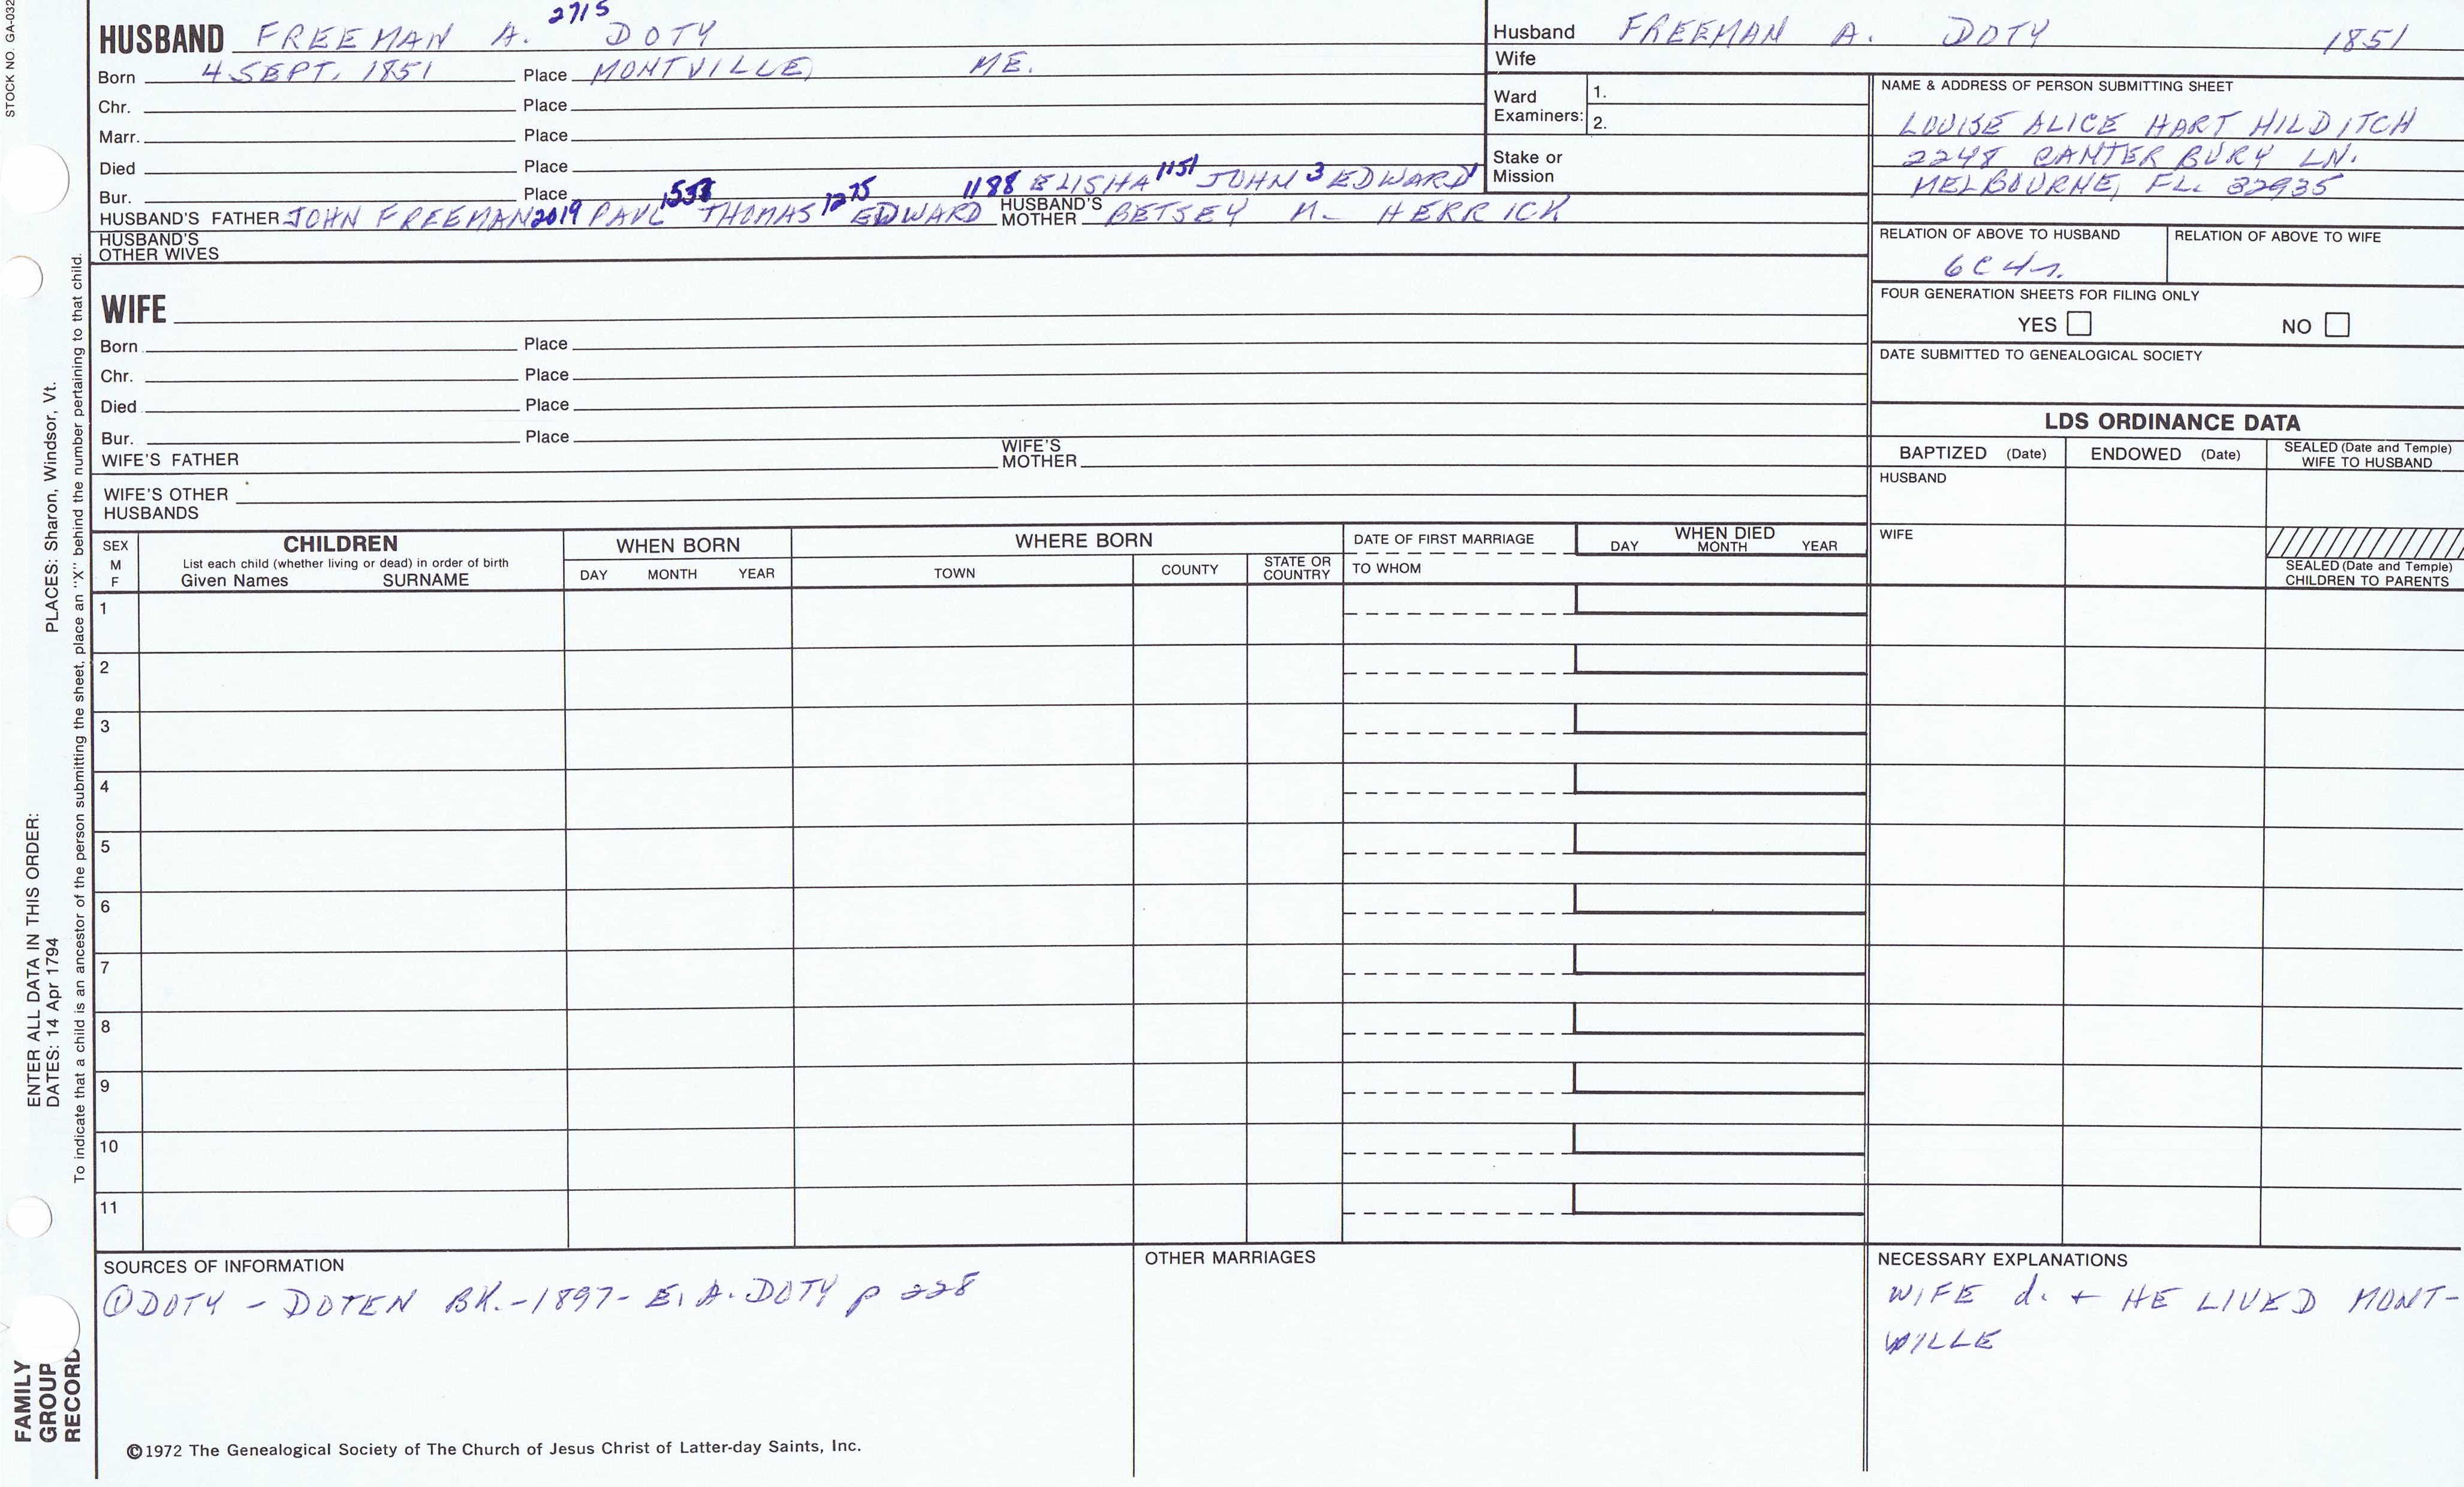 STOCK NO. GA-032
2715
HUSBAND FREEMAN A. DOTY
Born 4 SEPT. 1851 Place MONTVILLE, ME.
Chr. Place
Marr. Place
Died Place
Bur. Place
1188 ELISHA 1151 JOHN 3 EDWARD 1
HUSBAND'S FATHER JOHN FREEMAN 2019 PAUL THOMAS 1275 EDWARD HUSBAND'S MOTHER BETSEY M. HERRICK
HUSBAND'S OTHER WIVES
WIFE
Born Place
Chr. Place
Died Place
Bur. Place
WIFE'S FATHER WIFE'S MOTHER
WIFE'S OTHER HUSBANDS
Husband FREEMAN A. DOTY 1851
Wife
Ward Examiners: 1.
2.
Stake or Mission
NAME & ADDRESS OF PERSON SUBMITTING SHEET
LOUISE ALICE HART HILDITCH
2248 CANTERBURY LN.
MELBOURNE, FL. 32935
RELATION OF ABOVE TO HUSBAND RELATION OF ABOVE TO WIFE
6C4r.
FOUR GENERATION SHEETS FOR FILING ONLY
YES NO
DATE SUBMITTED TO GENEALOGICAL SOCIETY
LDS ORDINANCE DATA
BAPTIZED (Date) ENDOWED (Date) SEALED (Date and Temple) WIFE TO HUSBAND
HUSBAND
WIFE
SEALED (Date and Temple) CHILDREN TO PARENTS
SEX M F
CHILDREN
List each child (whether living or dead) in order of birth
Given Names SURNAME
WHEN BORN
DAY MONTH YEAR
WHERE BORN
TOWN COUNTY STATE OR COUNTRY
DATE OF FIRST MARRIAGE
TO WHOM
WHEN DIED
DAY MONTH YEAR
1
2
3
4
5
6
7
8
9
10
11
SOURCES OF INFORMATION
① DOTY - DOTEN BK. - 1897 - E. A. DOTY p 228
OTHER MARRIAGES
NECESSARY EXPLANATIONS
WIFE d. + HE LIVED MONT-
VILLE
©1972 The Genealogical Society of The Church of Jesus Christ of Latter-day Saints, Inc.
FAMILY
GROUP
RECORD
ENTER ALL DATA IN THIS ORDER:
DATES: 14 Apr 1794 PLACES: Sharon, Windsor, Vt.
To indicate that a child is an ancestor of the person submitting the sheet, place an "X" behind the number pertaining to that child.